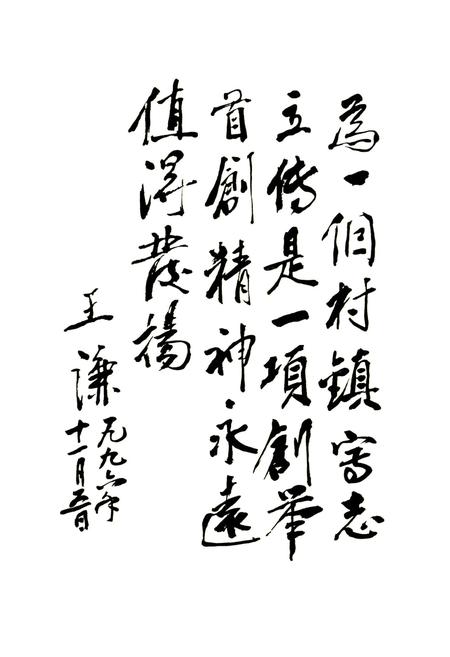 為一個村鎮寫志
立傳是一項創举
首創精神·永遠
值得發揚
王謙
一九九六年
十一月五日